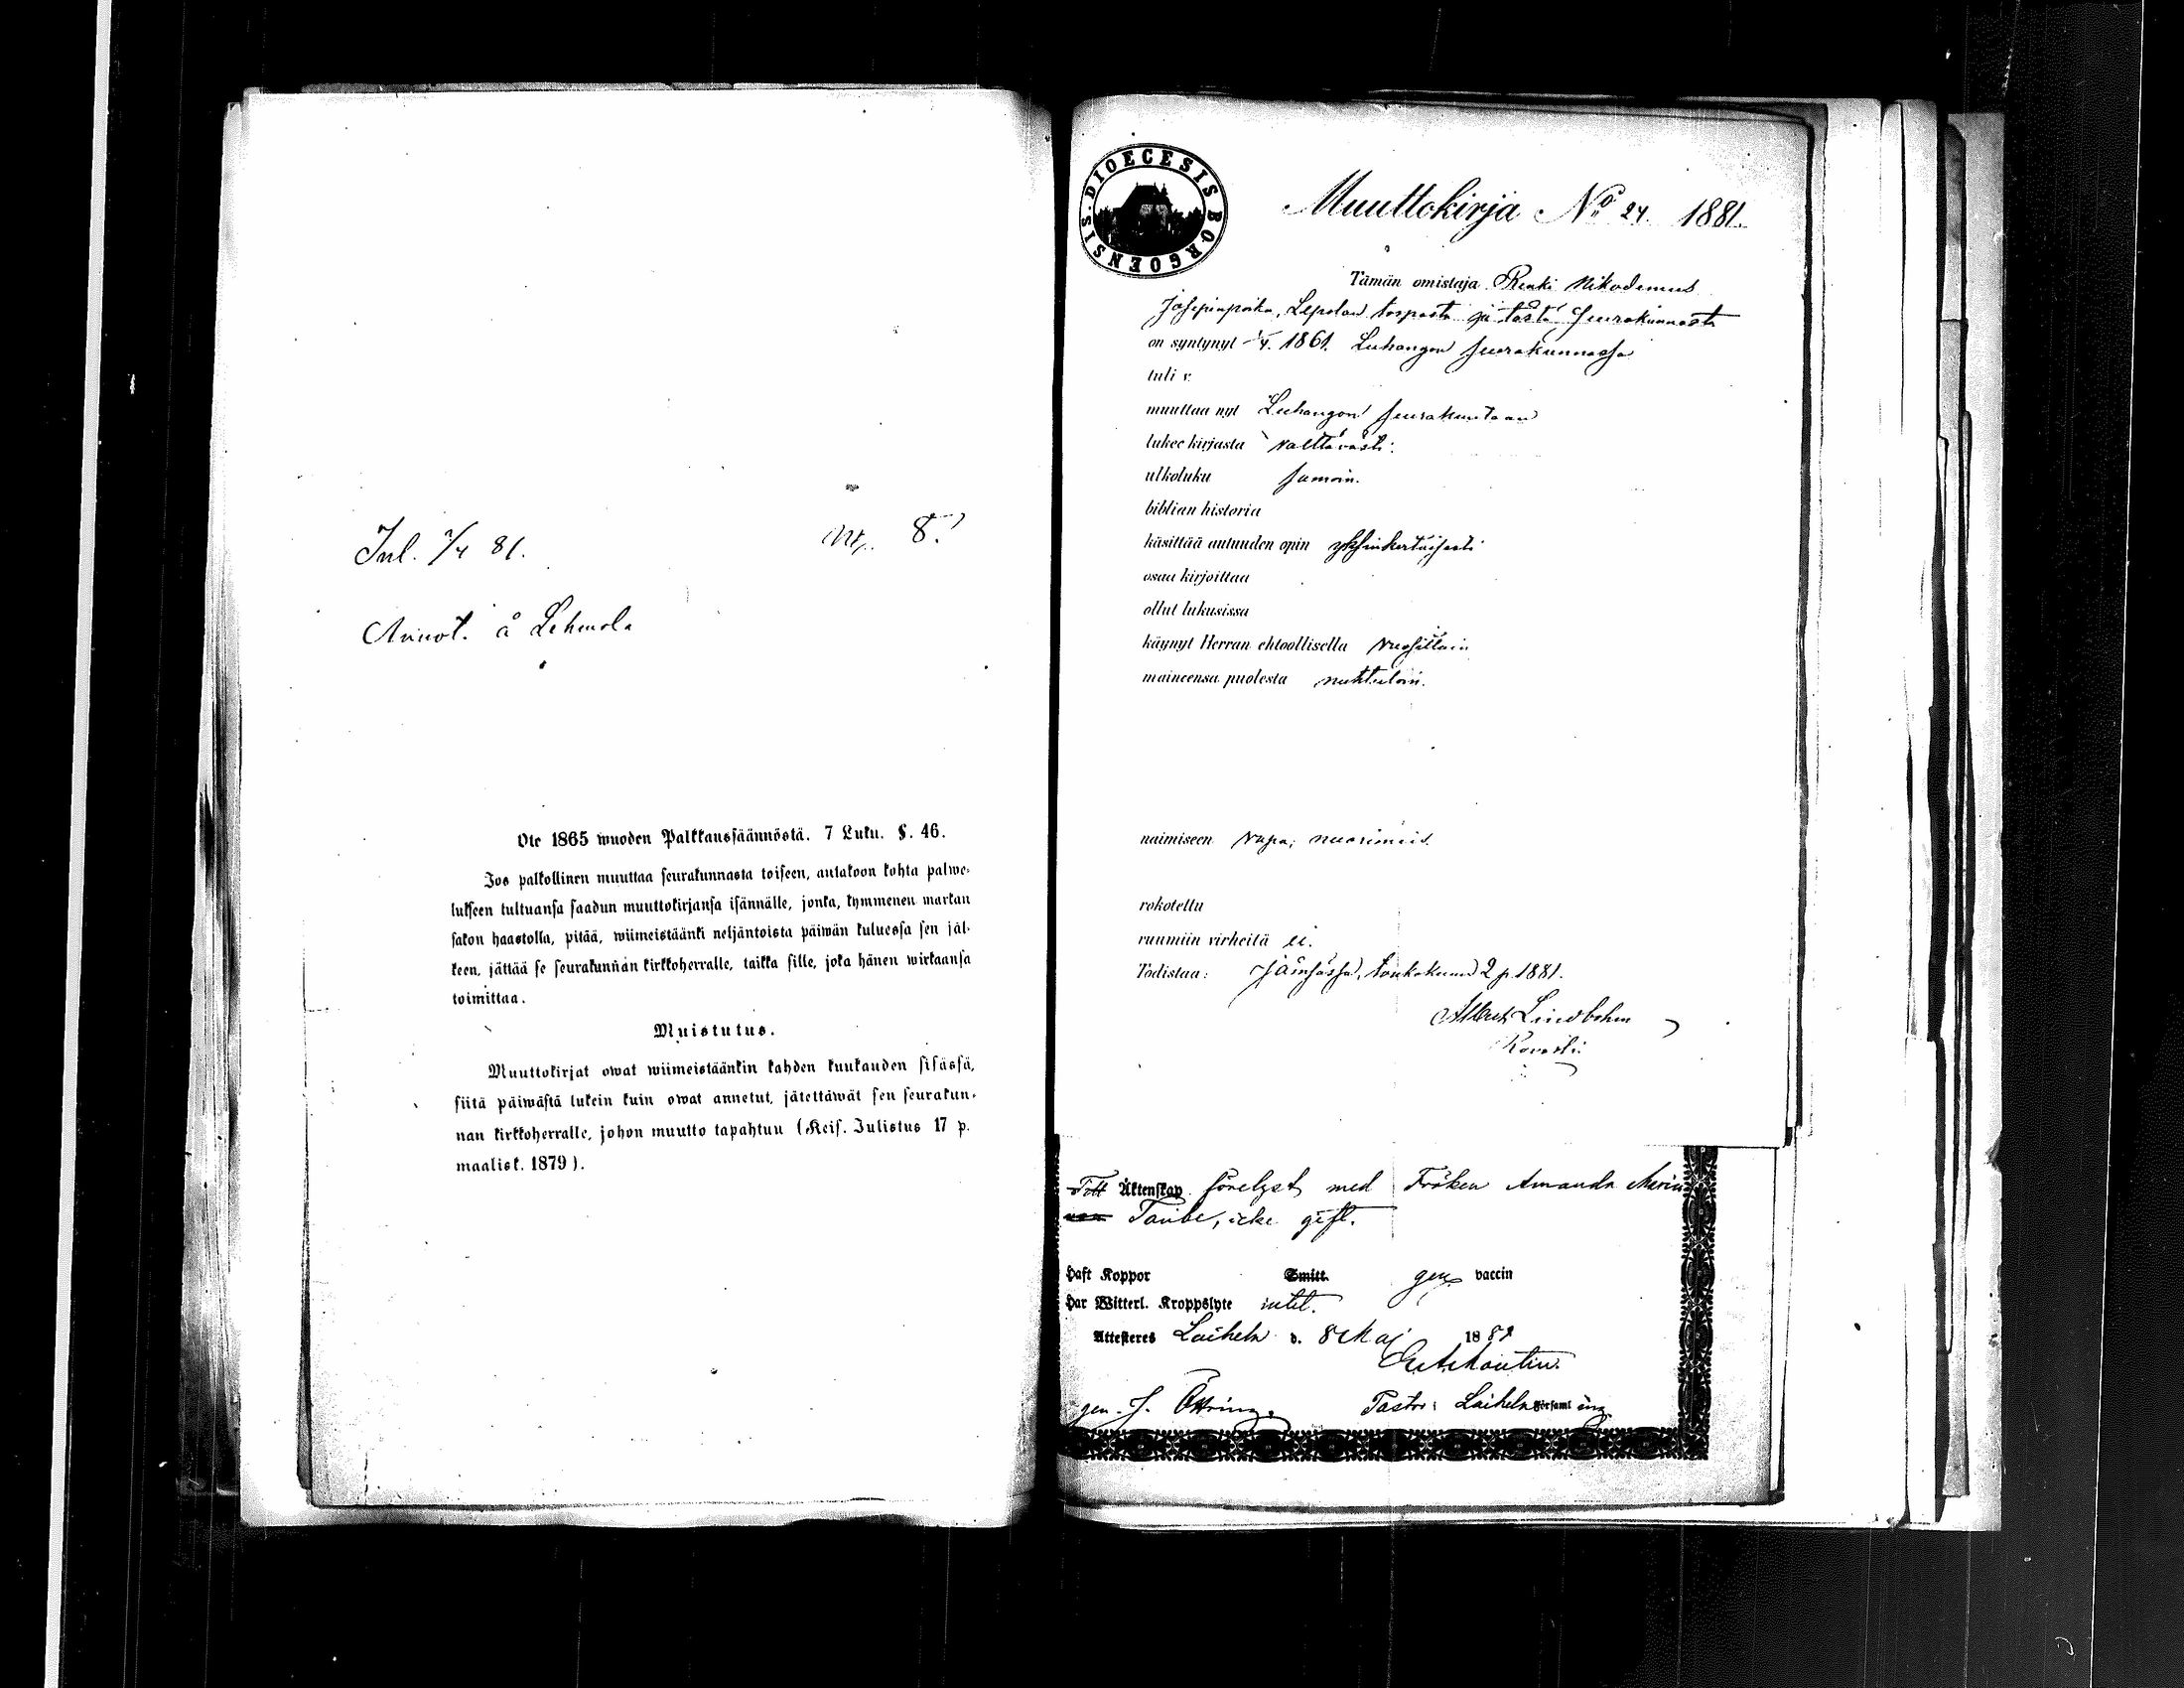 Inl. 7/4 81.
Nt. 8.
Annot. å Lehmola
Ote 1865 wuoden Palkkaussäännöstä. 7 Luku. §. 46.
Jos palkollinen muuttaa seurakunnasta toiseen, antakoon kohta palwe-
lukseen tultuansa saadun muuttokirjansa isännälle, jonka, kymmenen markan
sakon haastolla, pitää, wiimeistäänki neljäntoista päiwän kuluessa sen jäl-
keen, jättää se seurakunnan kirkkoherralle, taikka sille, joka hänen wirkaansa
toimittaa.
Muistutus.
Muuttokirjat owat wiimeistäänkin kahden kuukauden sisässä,
siitä päiwästä lukein kuin owat annetut, jätettäwät sen seurakun-
nan kirkkoherralle, johon muutto tapahtuu (Keis. Julistus 17 p.
maalisk. 1879).
DIOECESIS BORGOENSIS
Muuttokirja No 24. 1881.
Tämän omistaja Renki Nikodemus
Josepinpoika, Lepolan torpasta ja tästä seurakunnasta
on syntynyt 1861. Luhangon seurakunnassa
tuli v.
muuttaa nyt Luhangon seurakuntaan
lukee kirjasta välttävästi.
ulkoluku samoin.
biblian historia
käsittää autuuden opin yksinkertaisesti
osaa kirjoittaa
ollut lukusissa
käynyt Herran ehtoollisella vuosittain
maineensa puolesta nuhteeton.
naimiseen vapa, nuorimies.
rokotettu
ruumiin virheitä ei.
Todistaa: Jämsässä, toukokuun 2 p. 1881.
Albert Lindbohm
Rovasti
Till Äktenskap förelyst med Fröken Amanda Maria
von Taube, icke gift.
Haft Koppor Smitt. gen vaccin
Har Witterl. Kroppslyte intet.
Attesteres Laihela d. 8 Maj 1881
gen. J. Östring. Pastor i Laihela Församl ing